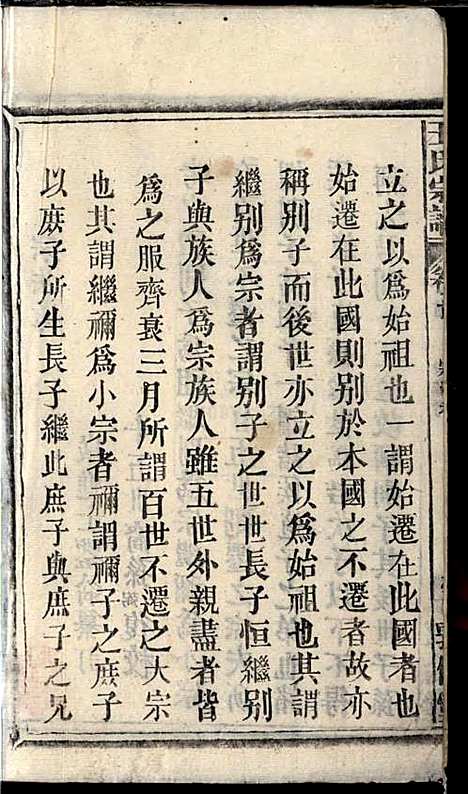 王氏宗譜
立之以為始祖也一謂始遷在此國者也
始遷在此國則别於本國之不遷者故亦
稱别子而後世亦立之以為始祖也其謂
繼别為宗者謂别子之世世長子恒繼别
子與族人為宗族人雖五世外親盡者皆
為之服齊衰三月所謂百世不遷之大宗
也其謂繼禰為小宗者禰謂禰子之庶子
以庶子所生長子繼此庶子與庶子之兄